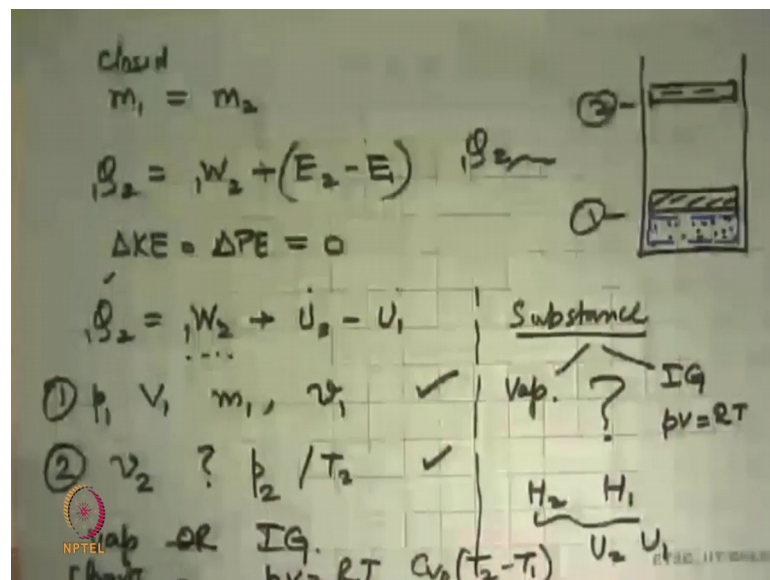 closed
m₁ = m₂
₁Q₂ = ₁W₂ + (E₂ - E₁)
₁Q₂
ΔKE = ΔPE = 0
₁Q₂ = ₁W₂ + U₂ - U₁
① p₁ V₁ m₁, v₁ ✓
② v₂ ? p₂ / T₂ ✓
Vap OR IG.
Chart pv = RT Cv₀(T₂ - T₁)
②
①
Substance
Vap. ? IG
pv = RT
H₂ H₁
U₂ U₁
NPTEL